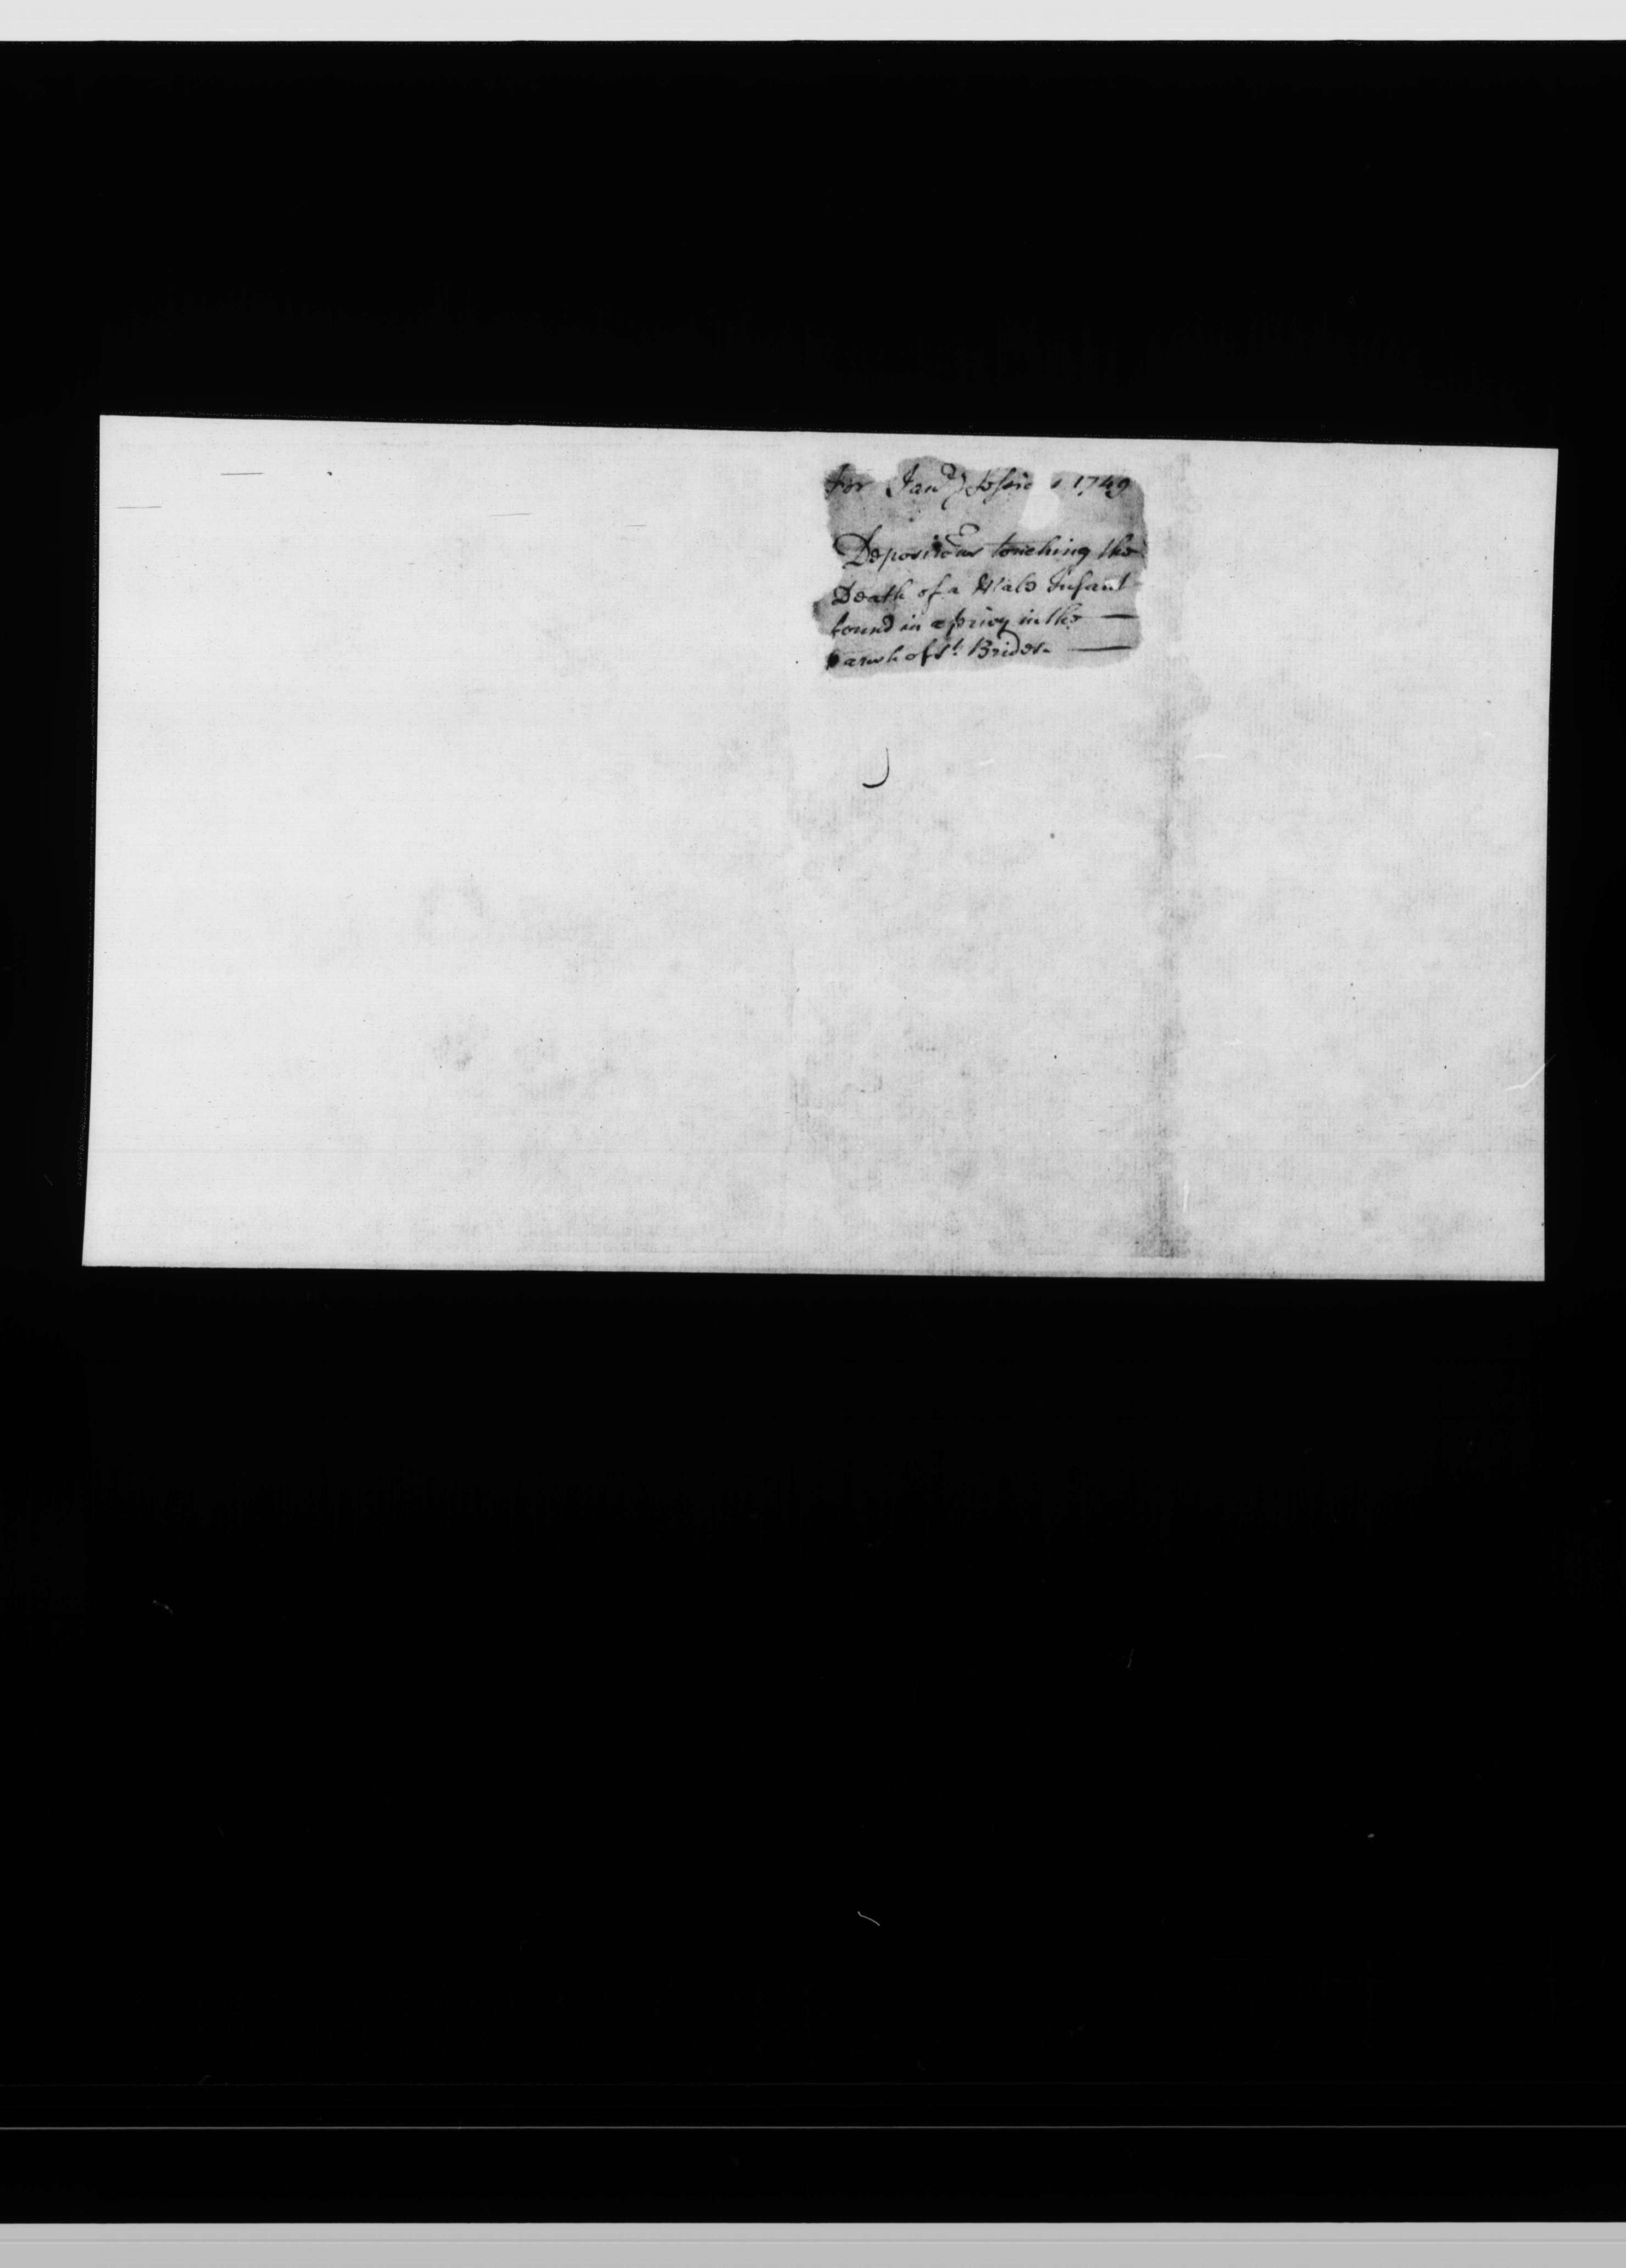 For Jan.ry Sessio s 1749
Deposicōns touching the
Death of a Male Infant
found in a privy in the
parish of St. Brides